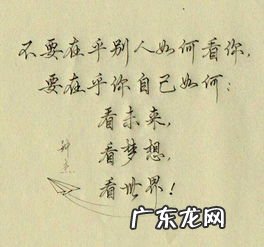 不要在乎别人如何看你，
要在乎你自己如何：
看未来，
看梦想，
看世界！
广东龙网